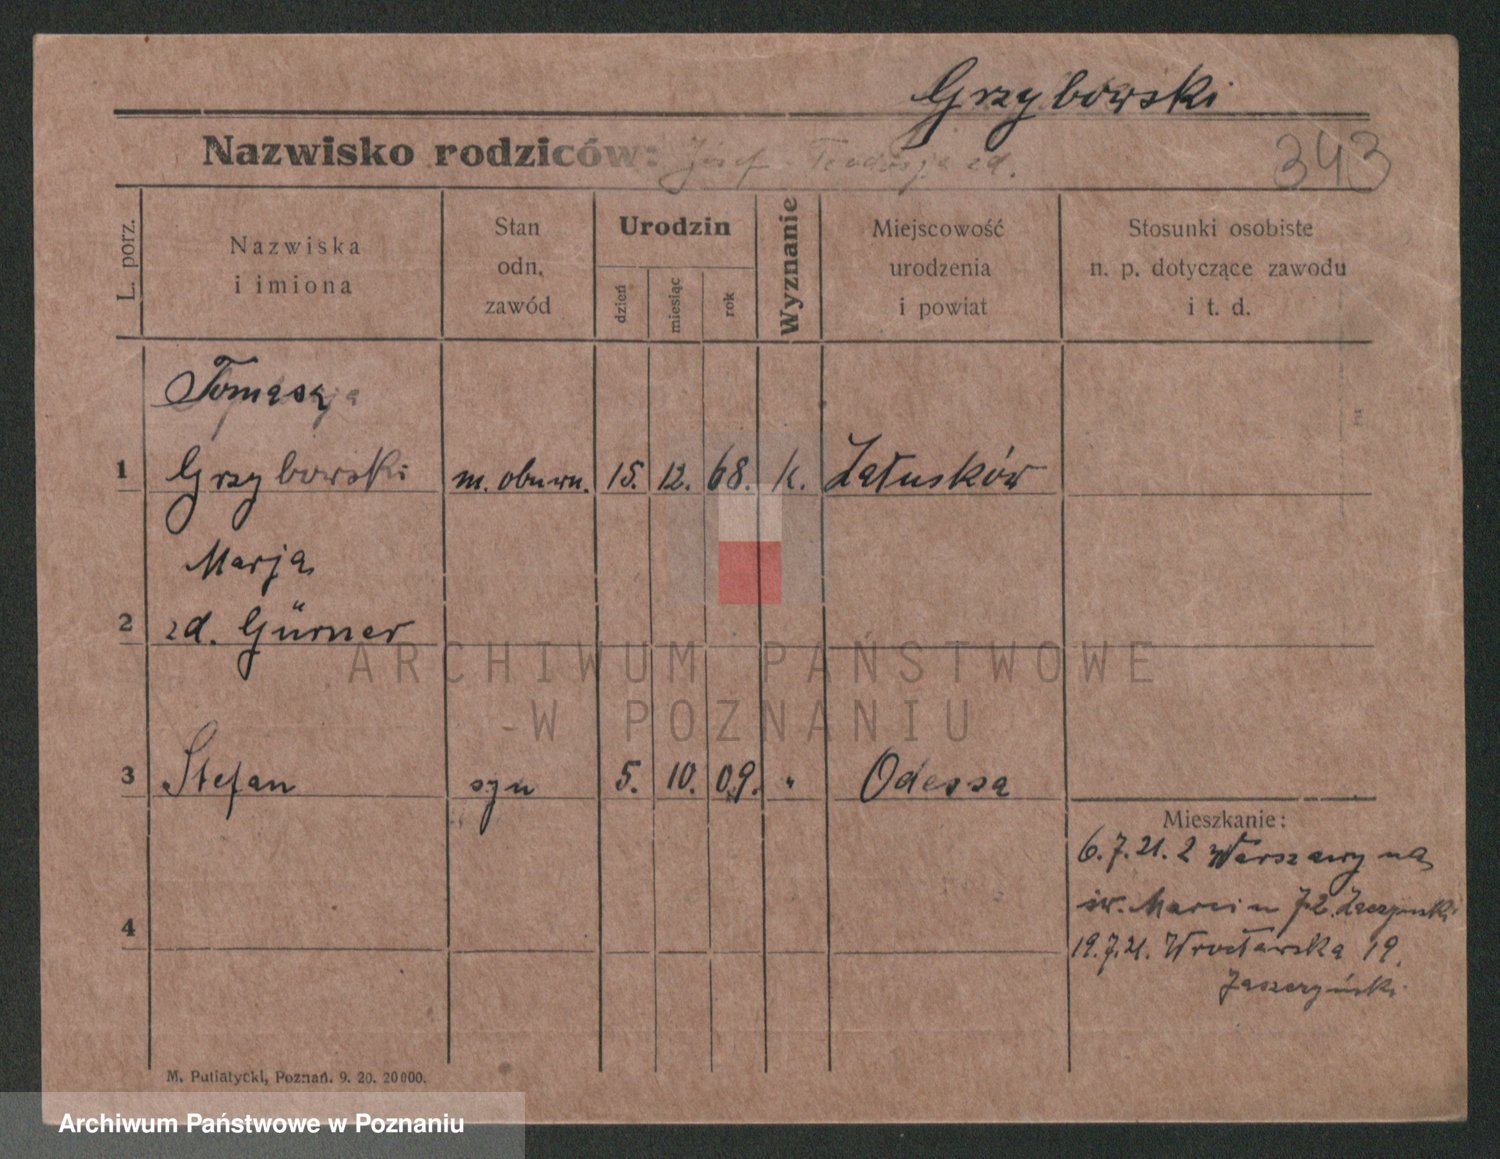 Grzybowski
Nazwisko rodziców: Józef - Teodozja zd.
343
L. porz.
Nazwiska
i imiona
Stan
odn.
zawód
Urodzin
dzień
miesiąc
rok
Wyznanie
Miejscowość
urodzenia
i powiat
Stosunki osobiste
n. p. dotyczące zawodu
i t. d.
Tomasz
1 Grzybowski m. obuwn. 15. 12. 68. k. Załusków
Marja
2 zd. Gürner
3 Stefan syn 5. 10. 09. " Odessa
Mieszkanie:
6.7.21. z Warszawy na
św. Marcin 72.
4
19.7.21. Wrocławska 19.
M. Putiatycki, Poznań. 9. 20. 20000.
ARCHIWUM PAŃSTWOWE
W POZNANIU
Archiwum Państwowe w Poznaniu